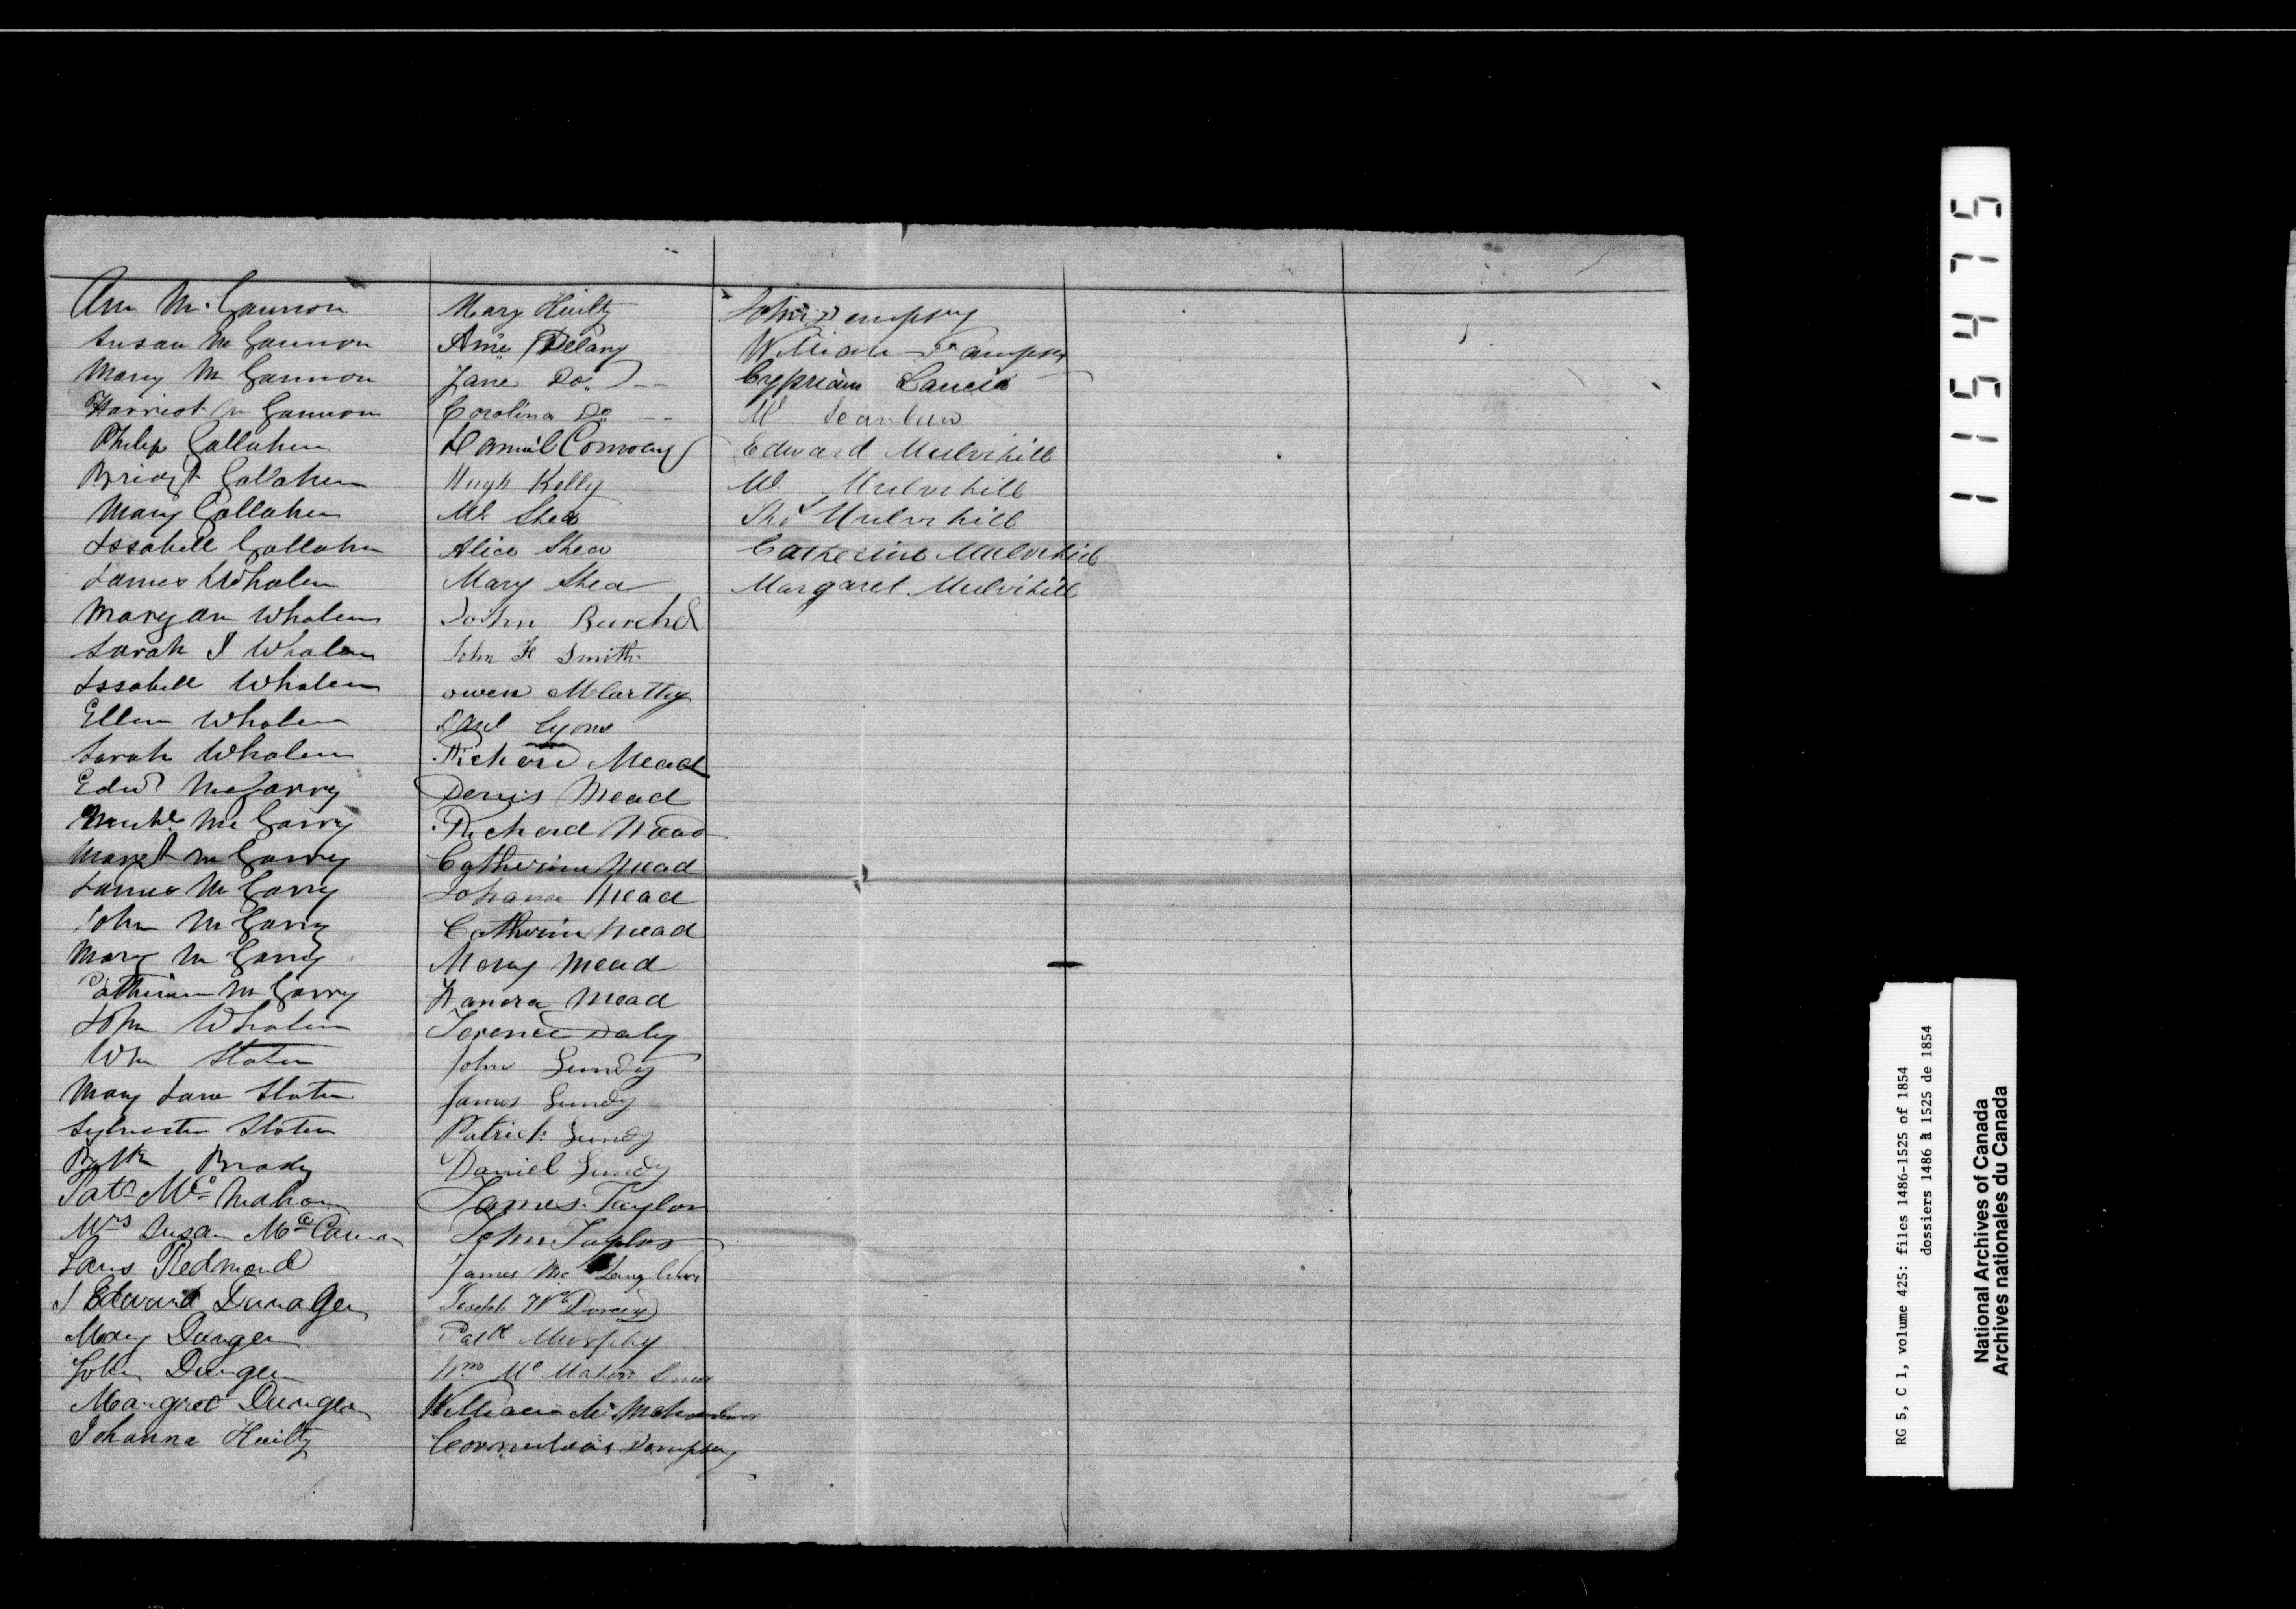 Ann McGannon
Susan McGannon
Mary McGannon
Harriot McGannon
Philip Gallahen
Bridgt Gallahen
Mary Gallahen
Issabell Gallahen
James Whalen
Maryan Whalen
Sarah J Whalen
Issabell Whalen
Ellen Whalen
Sarah Whalen
Edwd McGarry
Michl McGarry
Margt McGarry
James McGarry
John McGarry
Mary McGarry
Catherine McGarry
John Whalen
Wm Staten
Mary Jane Staten
Sylvester Staten
Brady
Patk McMahon
Mrs Susan
Redmond
J Edward
Mary Dungen
John Dungen
Margret Dungen
Johanna Huilty
Mary Huilty
Ame Delany
Jane Do.
Carolina Do
Daniel Conway
Hugh Kelly
M. Shea
Alice Shea
Mary Shea
John
John F Smith
owen McCarthy
Lyons
Richard Mead
Denis Mead
Richard Mead
Catherine Mead
Johana Mead
Catherine Mead
Mary Mead
Hanora Mead
Terence Daly
John Gundy
James Gundy
Patrick Gundy
Daniel Gundy
James Taylor
John Taylor
James McLaughlin
Joseph
Patk Murphy
Wm McMahon
William McMahon
Cornelious Dempsey
John Dempsey
William Dempsey
Cyprian
M Scanlan
Edward Mulvihill
M. Mulvihill
Thos Mulvihill
Catherine Mulvihill
Margaret Mulvihill
115475
RG 5, C 1, volume 425: files 1486-1525 of 1854
dossiers 1486 à 1525 de 1854
National Archives of Canada
Archives nationales du Canada